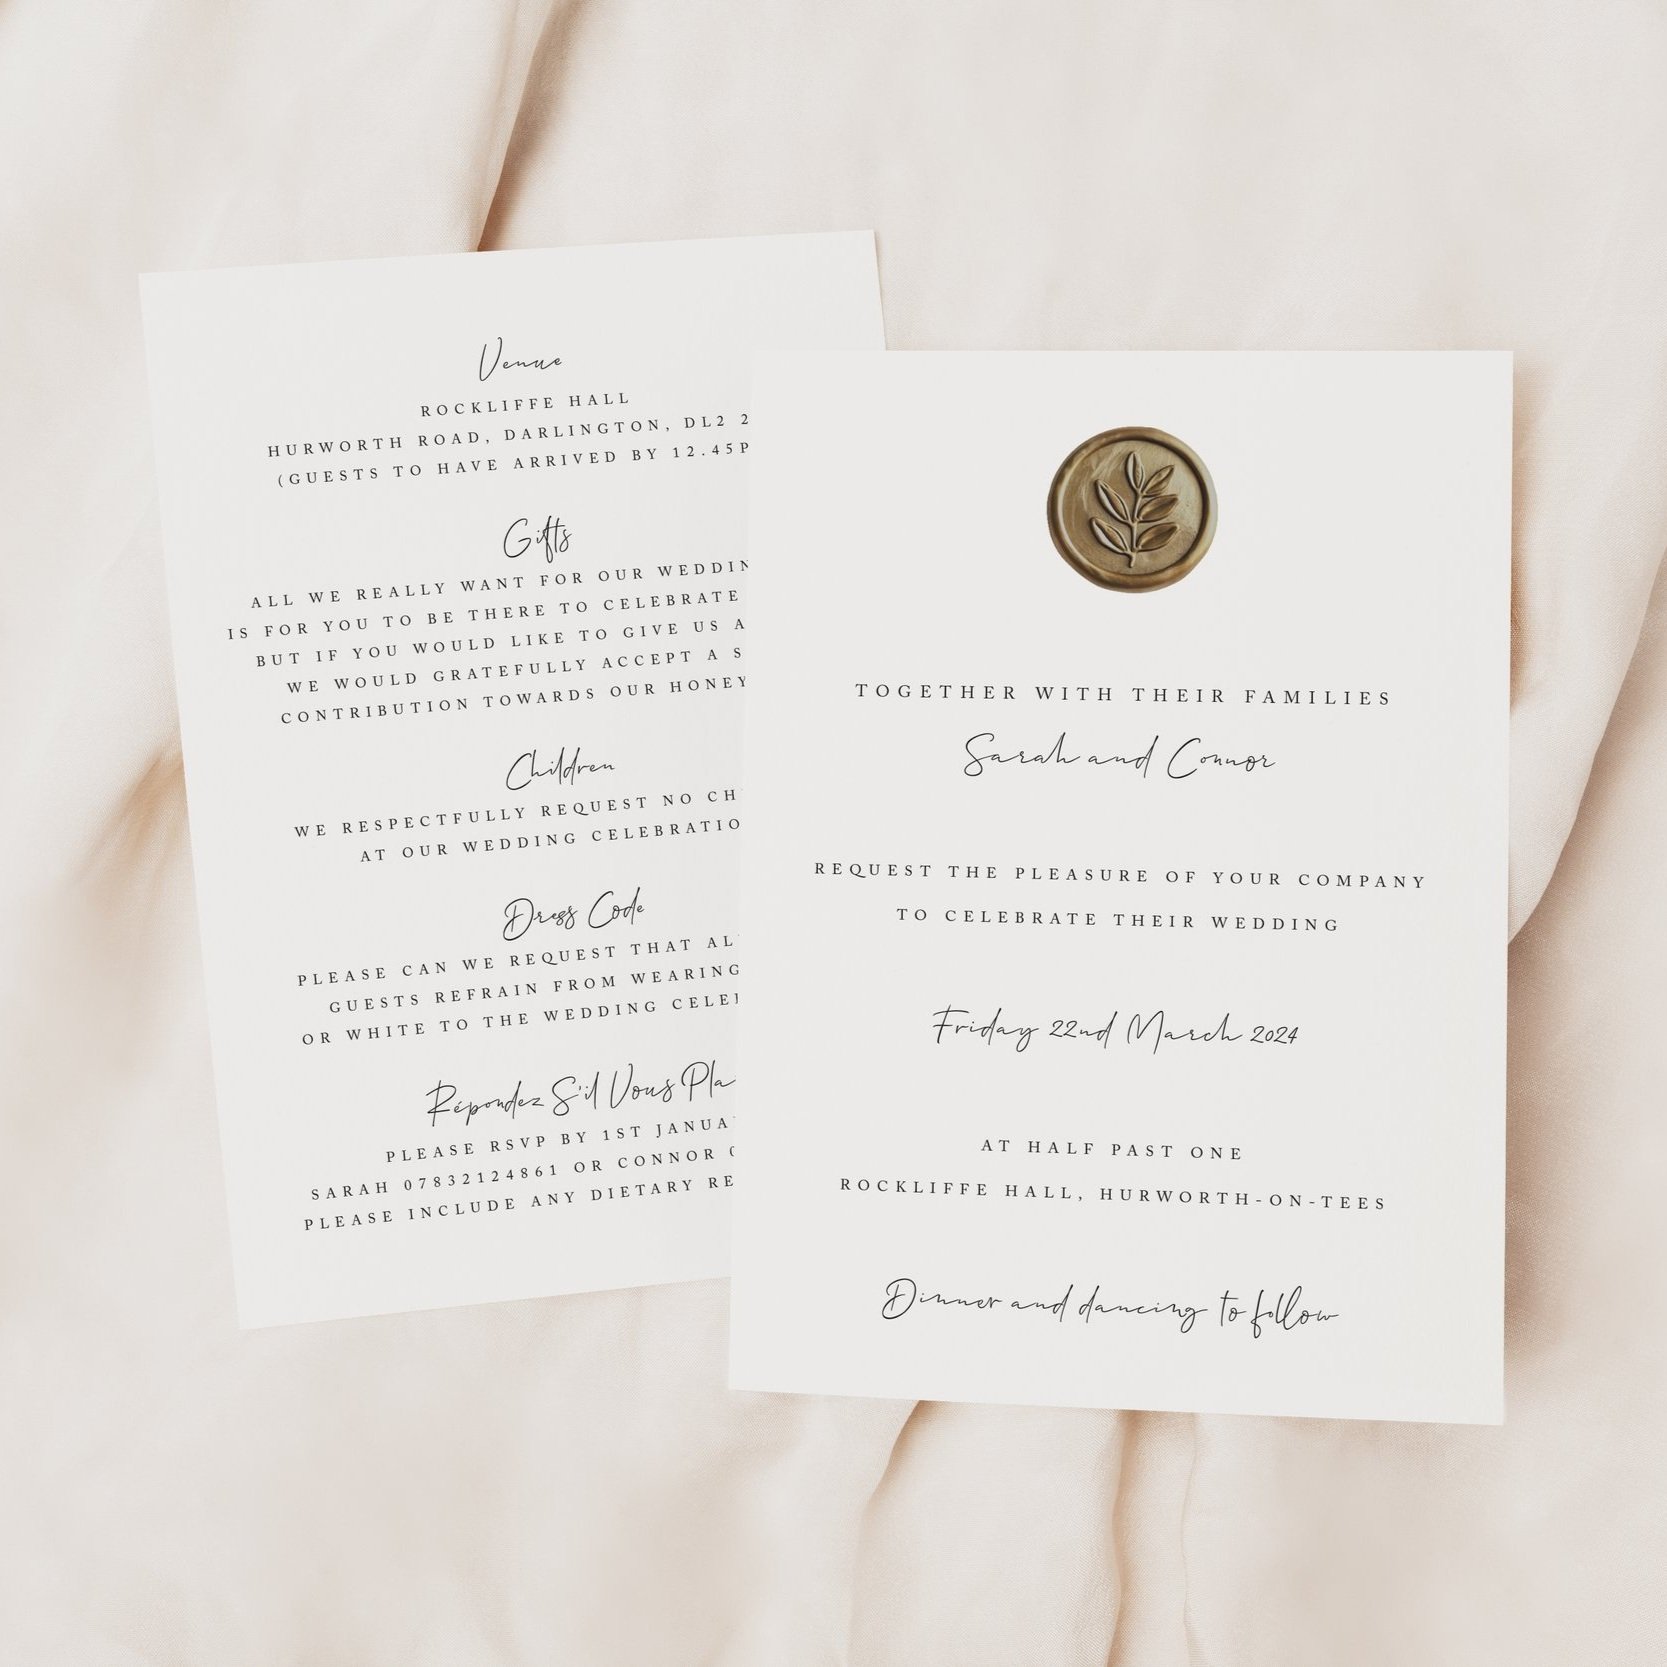 Venue
ROCKLIFFE HALL
HURWORTH ROAD, DARLINGTON, DL2 2
(GUESTS TO HAVE ARRIVED BY 12.45P
Gifts
ALL WE REALLY WANT FOR OUR WEDDIN
IS FOR YOU TO BE THERE TO CELEBRATE
BUT IF YOU WOULD LIKE TO GIVE US A
WE WOULD GRATEFULLY ACCEPT A S
CONTRIBUTION TOWARDS OUR HONEY
Children
WE RESPECTFULLY REQUEST NO CH
AT OUR WEDDING CELEBRATIO
Dress Code
PLEASE CAN WE REQUEST THAT AL
GUESTS REFRAIN FROM WEARING
OR WHITE TO THE WEDDING CELE
Répondez S'il Vous Pla
PLEASE RSVP BY 1ST JANUA
SARAH 07832124861 OR CONNOR 0
PLEASE INCLUDE ANY DIETARY RE
TOGETHER WITH THEIR FAMILIES
Sarah and Connor
REQUEST THE PLEASURE OF YOUR COMPANY
TO CELEBRATE THEIR WEDDING
Friday 22nd March 2024
AT HALF PAST ONE
ROCKLIFFE HALL, HURWORTH-ON-TEES
Dinner and dancing to follow